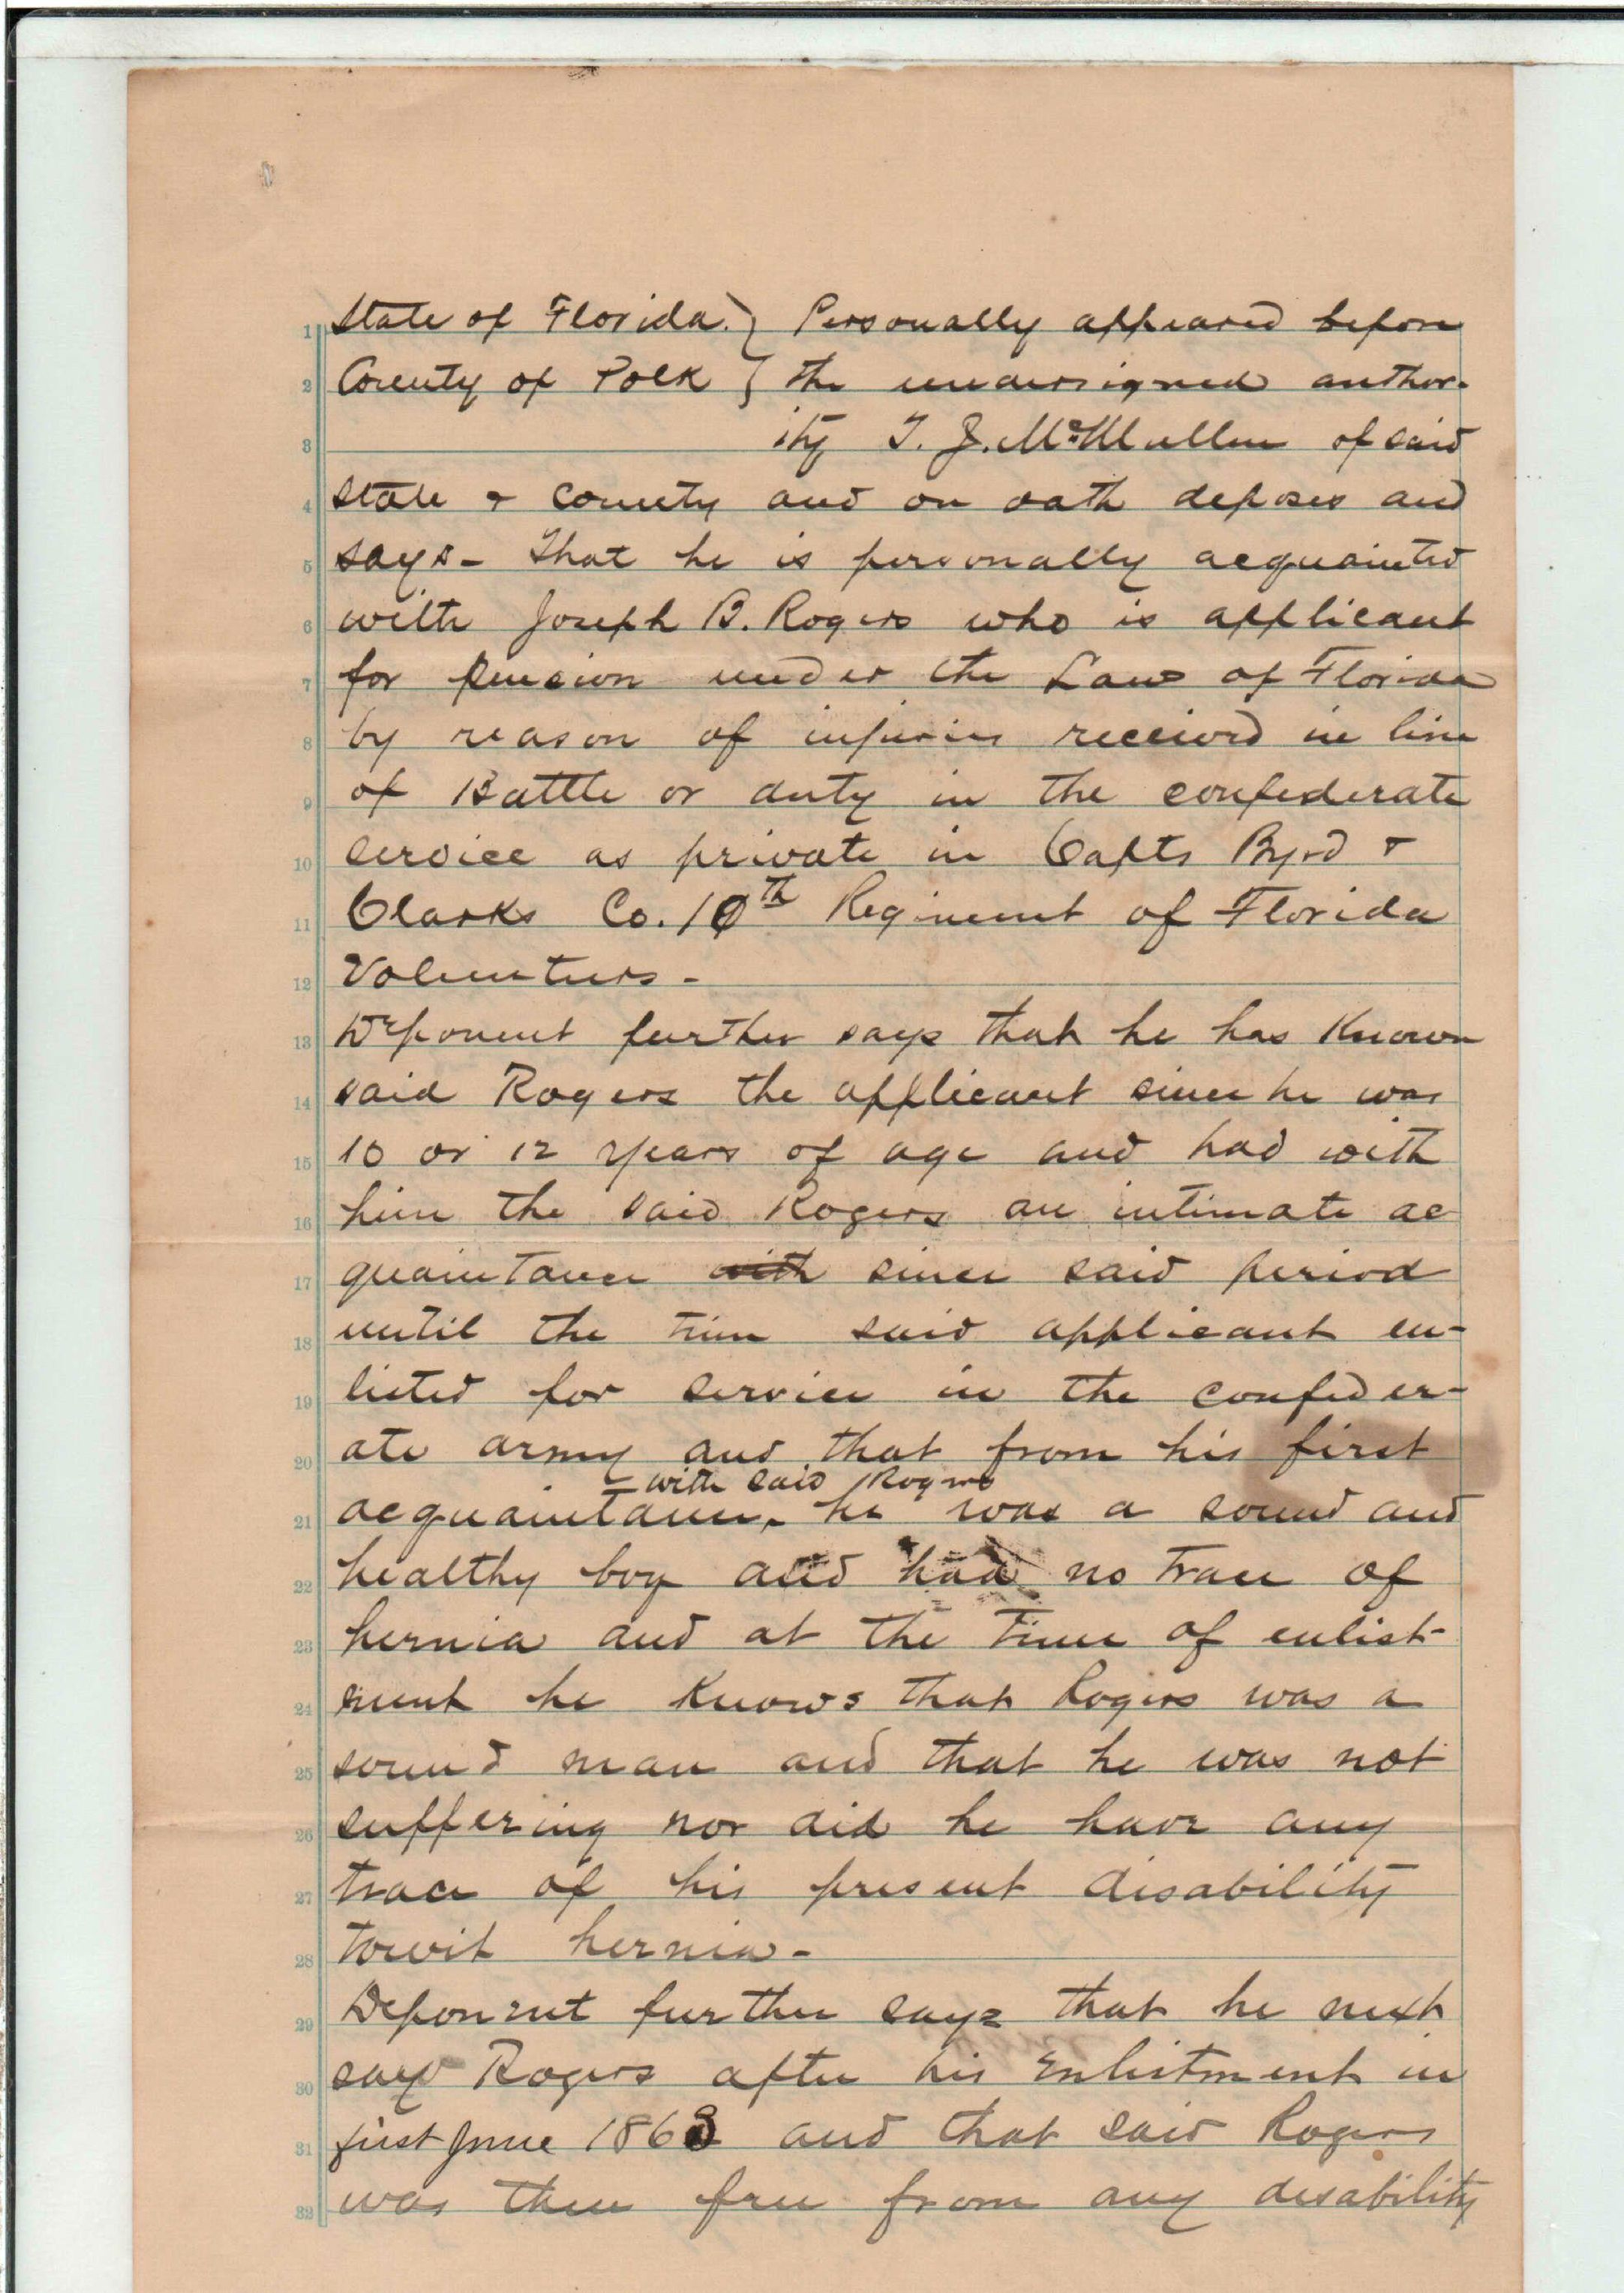 1 State of Florida. } Personally appeared before
2 County of Polk } the undersigned author-
3 ity T. J. McMullen of said
4 State & County and on oath deposes and
5 says - That he is personally acquainted
6 with Joseph B. Rogers who is applicant
7 for pension under the Laws of Florida
8 by reason of injuries received in line
9 of Battle or duty in the confederate
10 service as private in Capts Byrd &
11 Clarks Co. 10th Regiment of Florida
12 Volunteers -
13 Deponent further says that he has Known
14 said Rogers the applicant since he was
15 10 or 12 years of age and had with
16 him the said Rogers an intimate ac
17 quaintance with since said period
18 until the time said applicant en-
19 listed for service in the confeder-
20 ate army and that from his first
with said Rogers
21 acquaintance he was a sound and
22 healthy boy and had no trace of
23 hernia and at the time of enlist-
24 ment he Knows that Rogers was a
25 sound man and that he was not
26 suffering nor did he have any
27 trace of his present disability
28 towit hernia -
29 Deponent further says that he next
30 saw Rogers after his Enlistment in
31 first June 1863 and that said Rogers
32 was then free from any disability